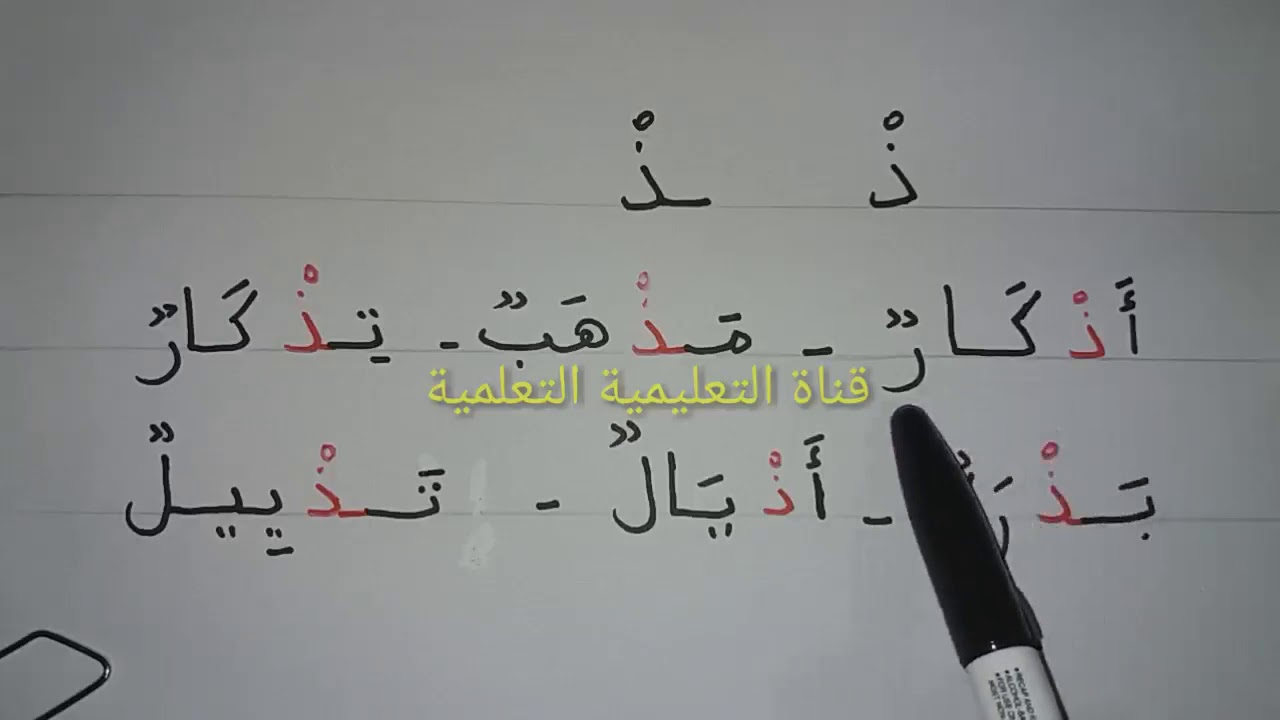 ذْ ـذْ
أَذْكَارٌ - مَـذْهَبٌ - تِـذْكَارٌ
قناة التعليمية التعلمية
- أَذْيَالٌ - تَـذْيِيلٌ